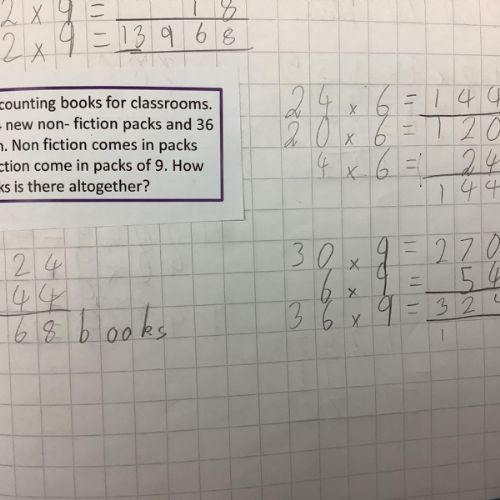 2 x 9 = 18
2 x 9 = 13968
counting books for classrooms.
new non- fiction packs and 36
n. Non fiction comes in packs
ction come in packs of 9. How
ks is there altogether?
24 x 6 = 144
20 x 6 = 120
4 x 6 = 24
144
30 x 9 = 270
6 x 9 = 54
36 x 9 = 324
1
24
44
68 books